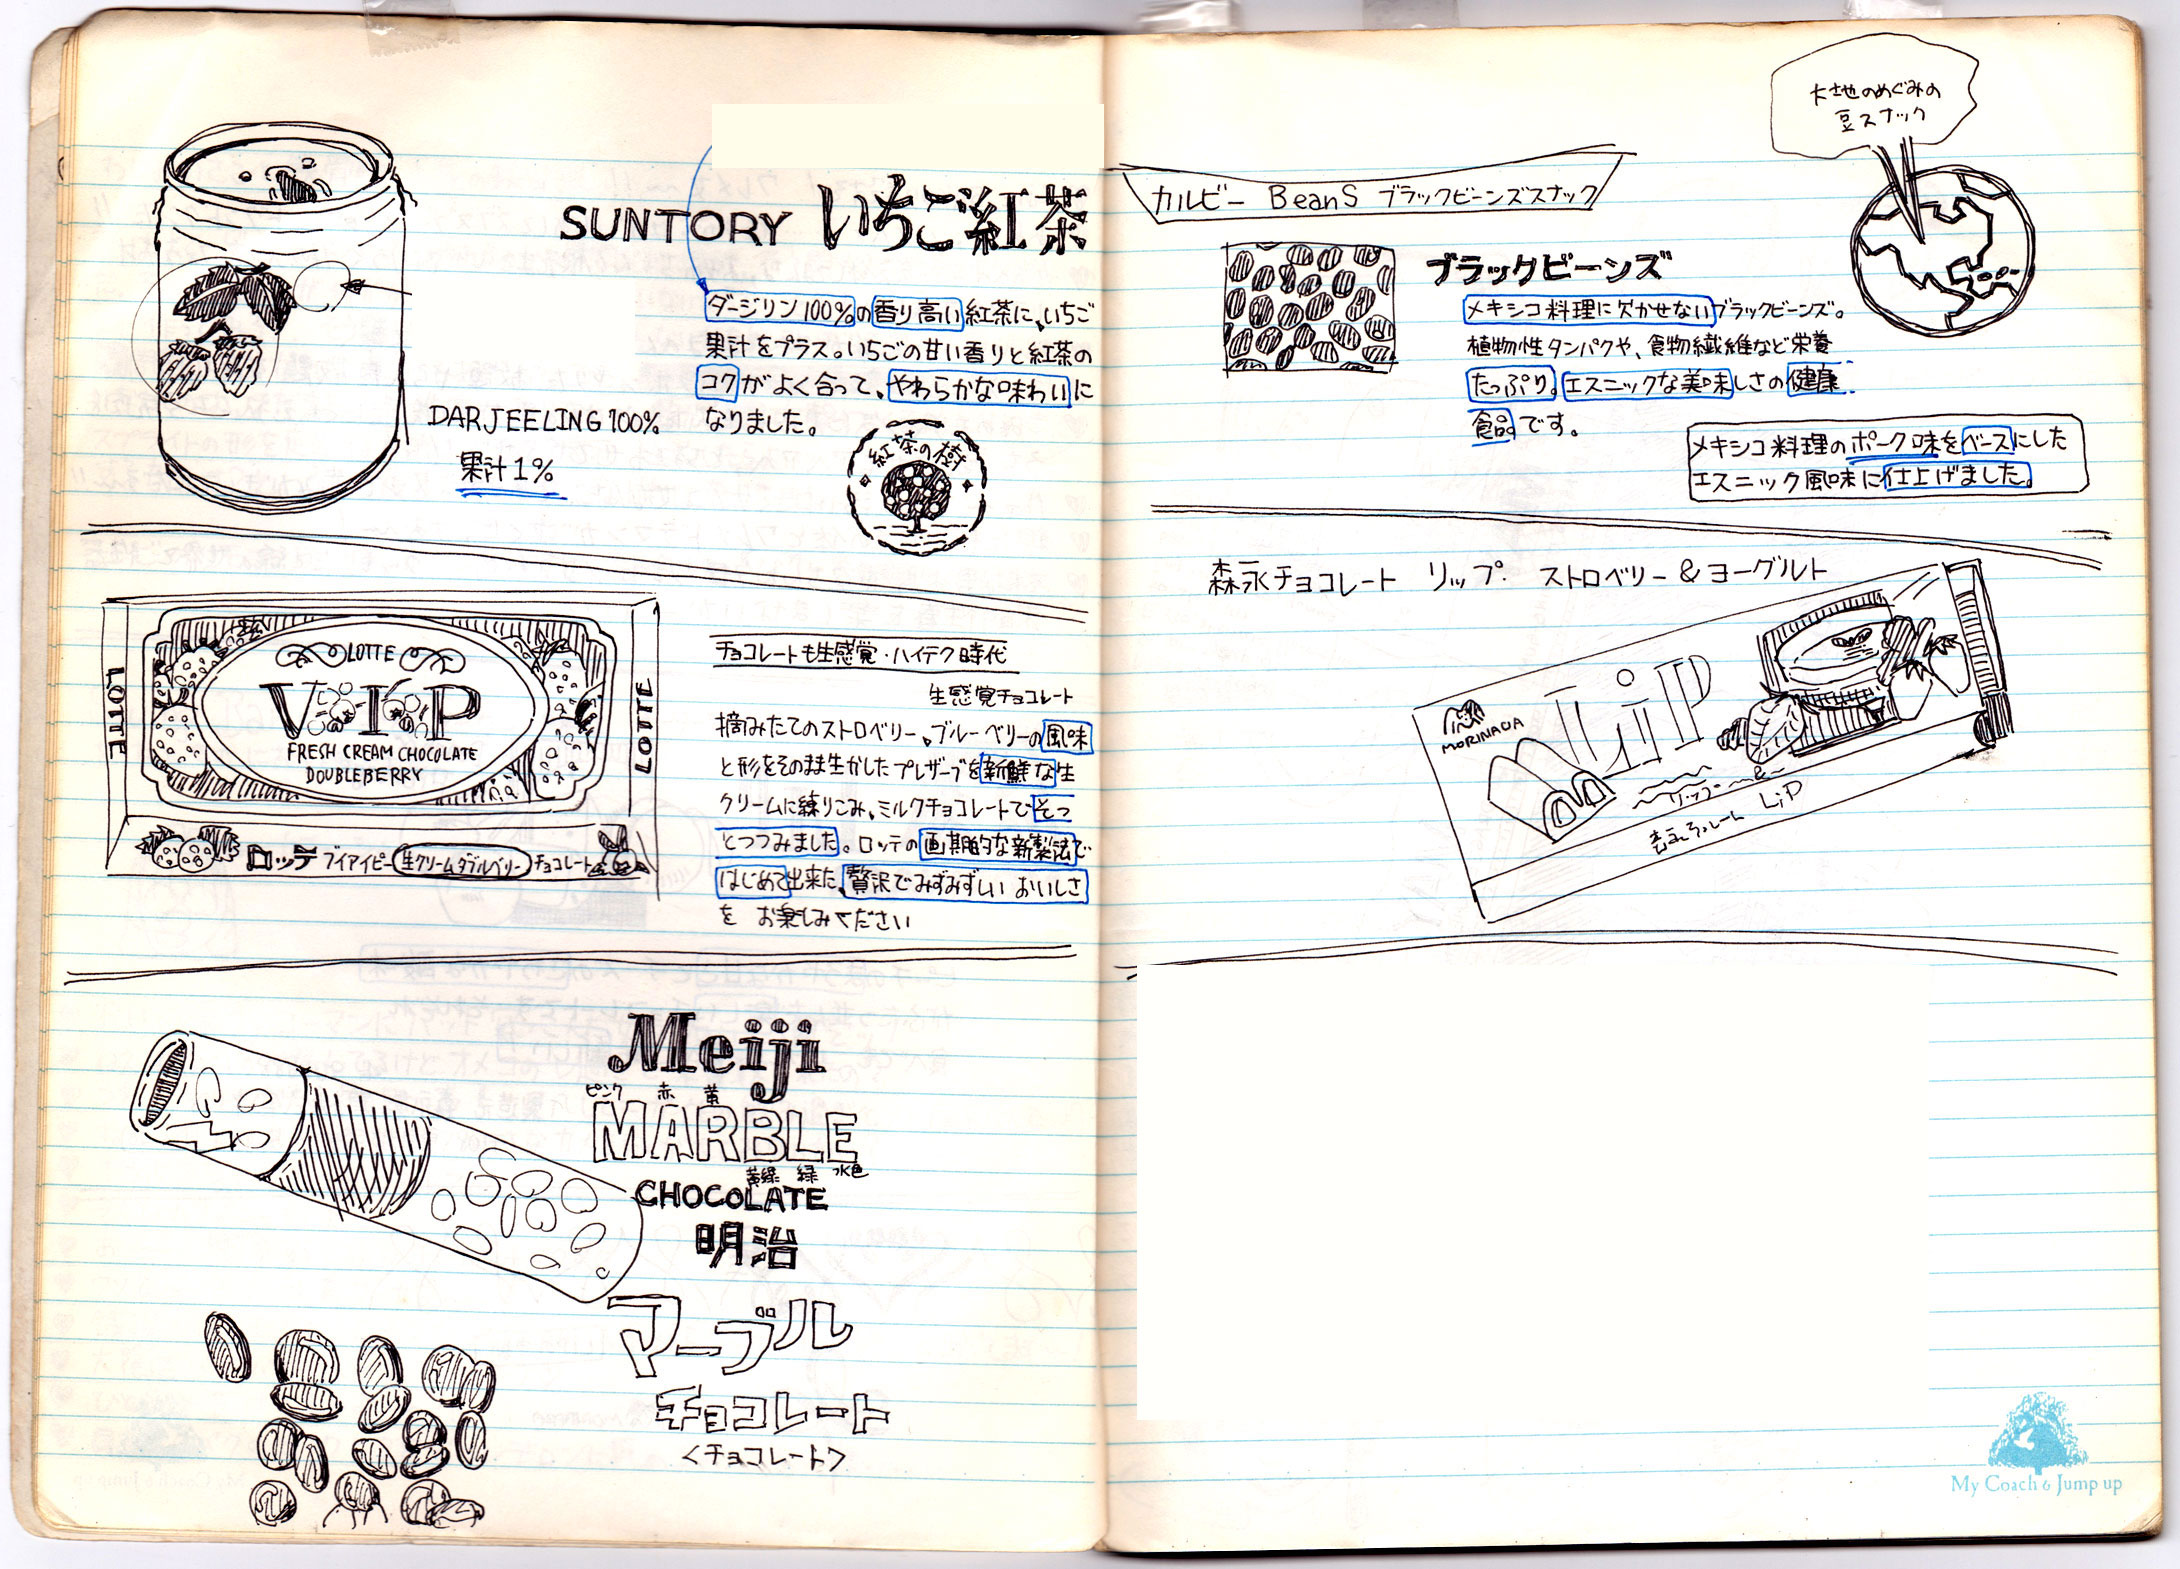 SUNTORY いちご紅茶
ダージリン100%の香り高い紅茶に、いちご
果汁をプラス。いちごの甘い香りと紅茶の
コクがよく合って、やわらかな味わいに
なりました。
DARJEELING 100%
果汁1%
紅茶の樹
LOTTE
VIP
FRESH CREAM CHOCOLATE
DOUBLEBERRY
LOTTE
LOTTE
ロッテ ブイアイピー 生クリームダブルベリー チョコレート
チョコレートも生感覚・ハイテク時代
生感覚チョコレート
摘みたてのストロベリー、ブルーベリーの風味
と形をそのまま生かしたプレザーブを新鮮な生
クリームに練りこみ、ミルクチョコレートでそっ
とつつみました。ロッテの画期的な新製法で
はじめて出来た、贅沢でみずみずしいおいしさ
を お楽しみください
Meiji
ピンク 赤 黄
MARBLE
黄緑 緑 水色
CHOCOLATE
明治
マーブル
チョコレート
<チョコレート>
大地のめぐみの
豆スナック
カルビー BeanS ブラックビーンズスナック
ブラックビーンズ
メキシコ料理に欠かせないブラックビーンズ。
植物性タンパクや、食物繊維など栄養
たっぷり。エスニックな美味しさの健康
食品です。
メキシコ料理のポーク味をベースにした
エスニック風味に仕上げました。
森永チョコレート リップ. ストロベリー&ヨーグルト
MORINAGA
LiP
&
リップ
LiP
My Coach & Jump up